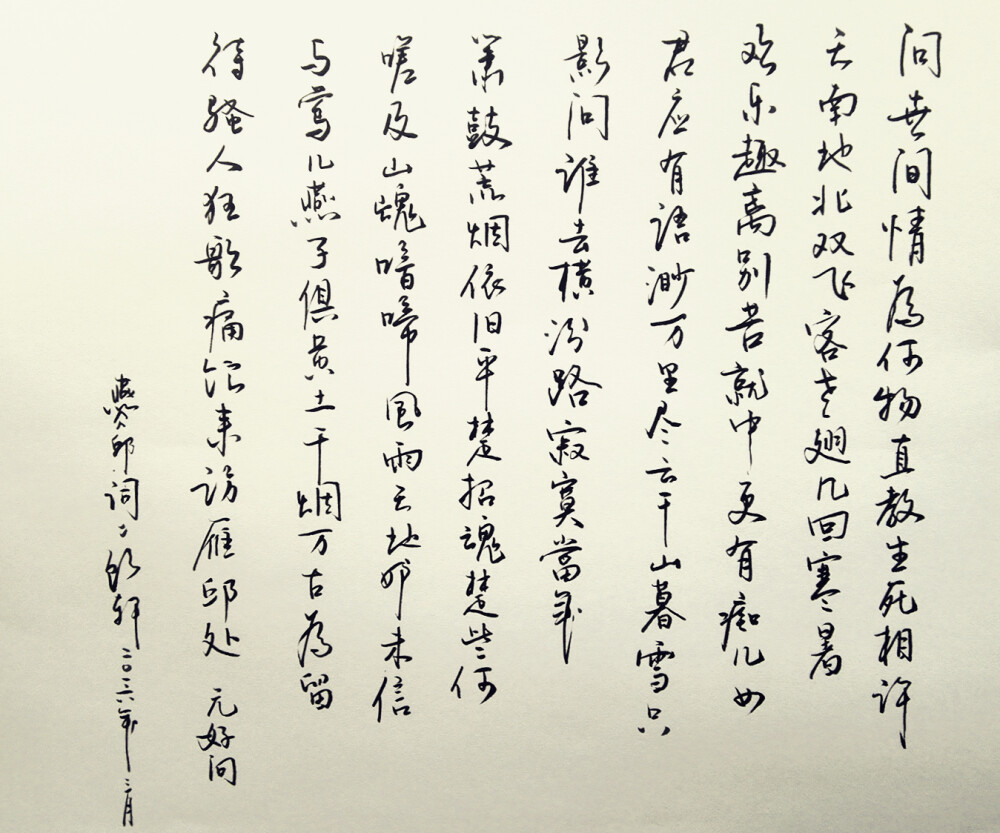 问世间情為何物直教生死相许
天南地北双飞客老翅几回寒暑
欢乐趣离别苦就中更有痴儿女
君应有语渺万里层云千山暮雪只
影问谁去横汾路寂寞當年
箫鼓荒烟依旧平楚招魂楚些何
嗟及山魂喑啼風雨天地妒未信
与莺儿燕子俱黄土千烟万古為留
待骚人狂歌痛饮来访雁邱处 元好问
邱词 轩 二〇二六年 月